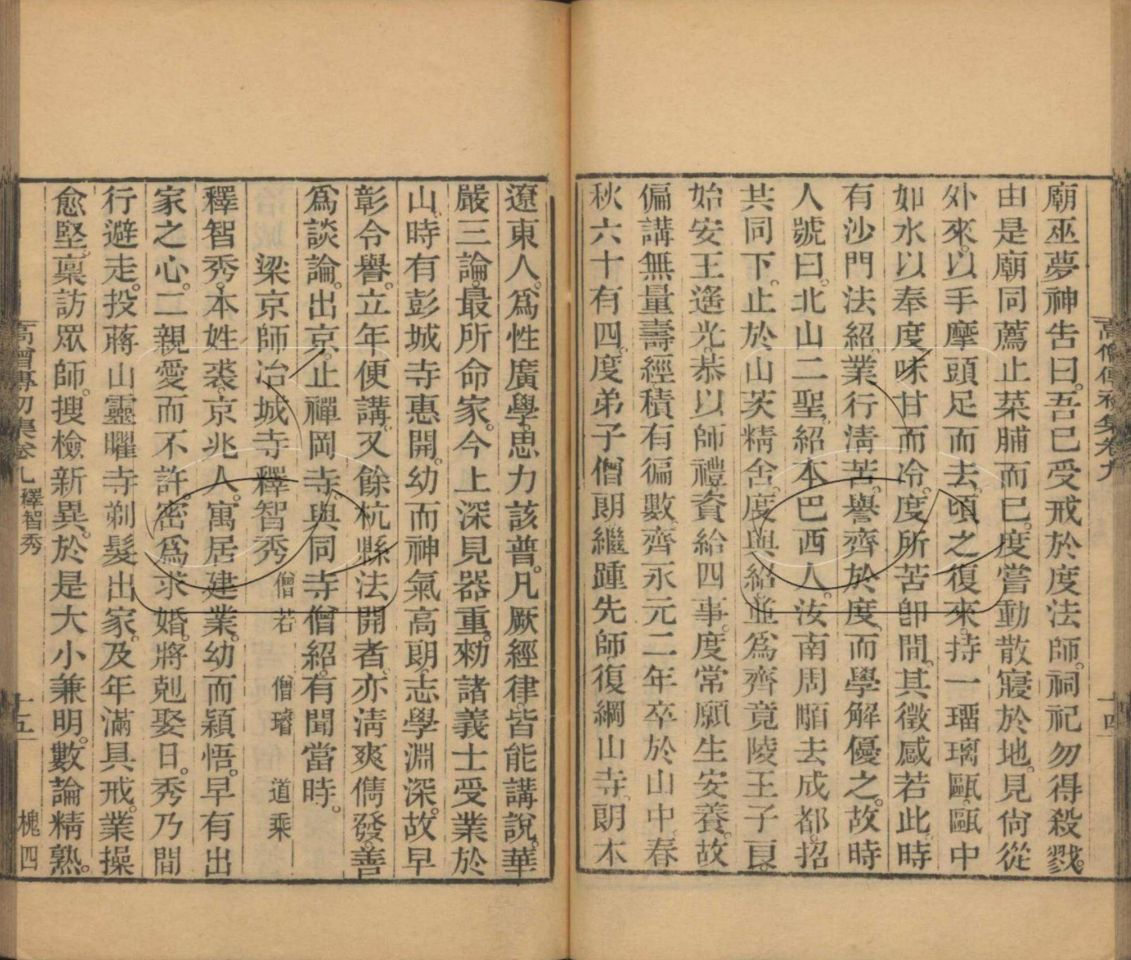 廟巫夢神吿曰。吾巳受戒於度法師。祠祀勿得殺戮。
由是廟同薦止菜脯而巳。度嘗動散寢於地。見尙從
外來。以手摩頭足而去。頃之復來。持一瑠璃甌。甌中
如水以奉度。味甘而冷。度所苦卽間。其徵感若此。時
有沙門法紹。業行淸苦。譽齊於度。而學解優之。故時
人號曰。北山二聖。紹本巴西人。汝南周顒去成都。招
共同下。止於山茨精舍。度與紹並爲齊竟陵王子良。
始安王遙光。恭以師禮。資給四事。度常願生安養。故
偏講無量壽經。積有徧數。齊永元二年卒於山中。春
秋六十有四。度弟子僧朗。繼踵先師。復綱山寺。朗本
高僧傳初集卷九
十四
遼東人。爲性廣學。思力該普。凡厥經律。皆能講說。華
嚴三論。最所命家。今上深見器重。勅諸義士受業於
山。時有彭城寺惠開。幼而神氣高朗。志學淵深。故早
彰令譽。立年便講。又餘杭縣法開者。亦淸爽儁發。善
爲談論。出京。止禪岡寺。與同寺僧紹。有聞當時。
梁京師冶城寺釋智秀 僧若 僧璿 道乘
釋智秀。本姓裘。京兆人。寓居建業。幼而穎悟。早有出
家之心。二親愛而不許。密爲求婚。將剋娶日。秀乃間
行避走。投蔣山靈曜寺剃髮出家。及年滿具戒。業操
愈堅。稟訪眾師。搜檢新異。於是大小兼明。數論精熟。
高僧傳初集卷九 釋智秀
十五
槐四